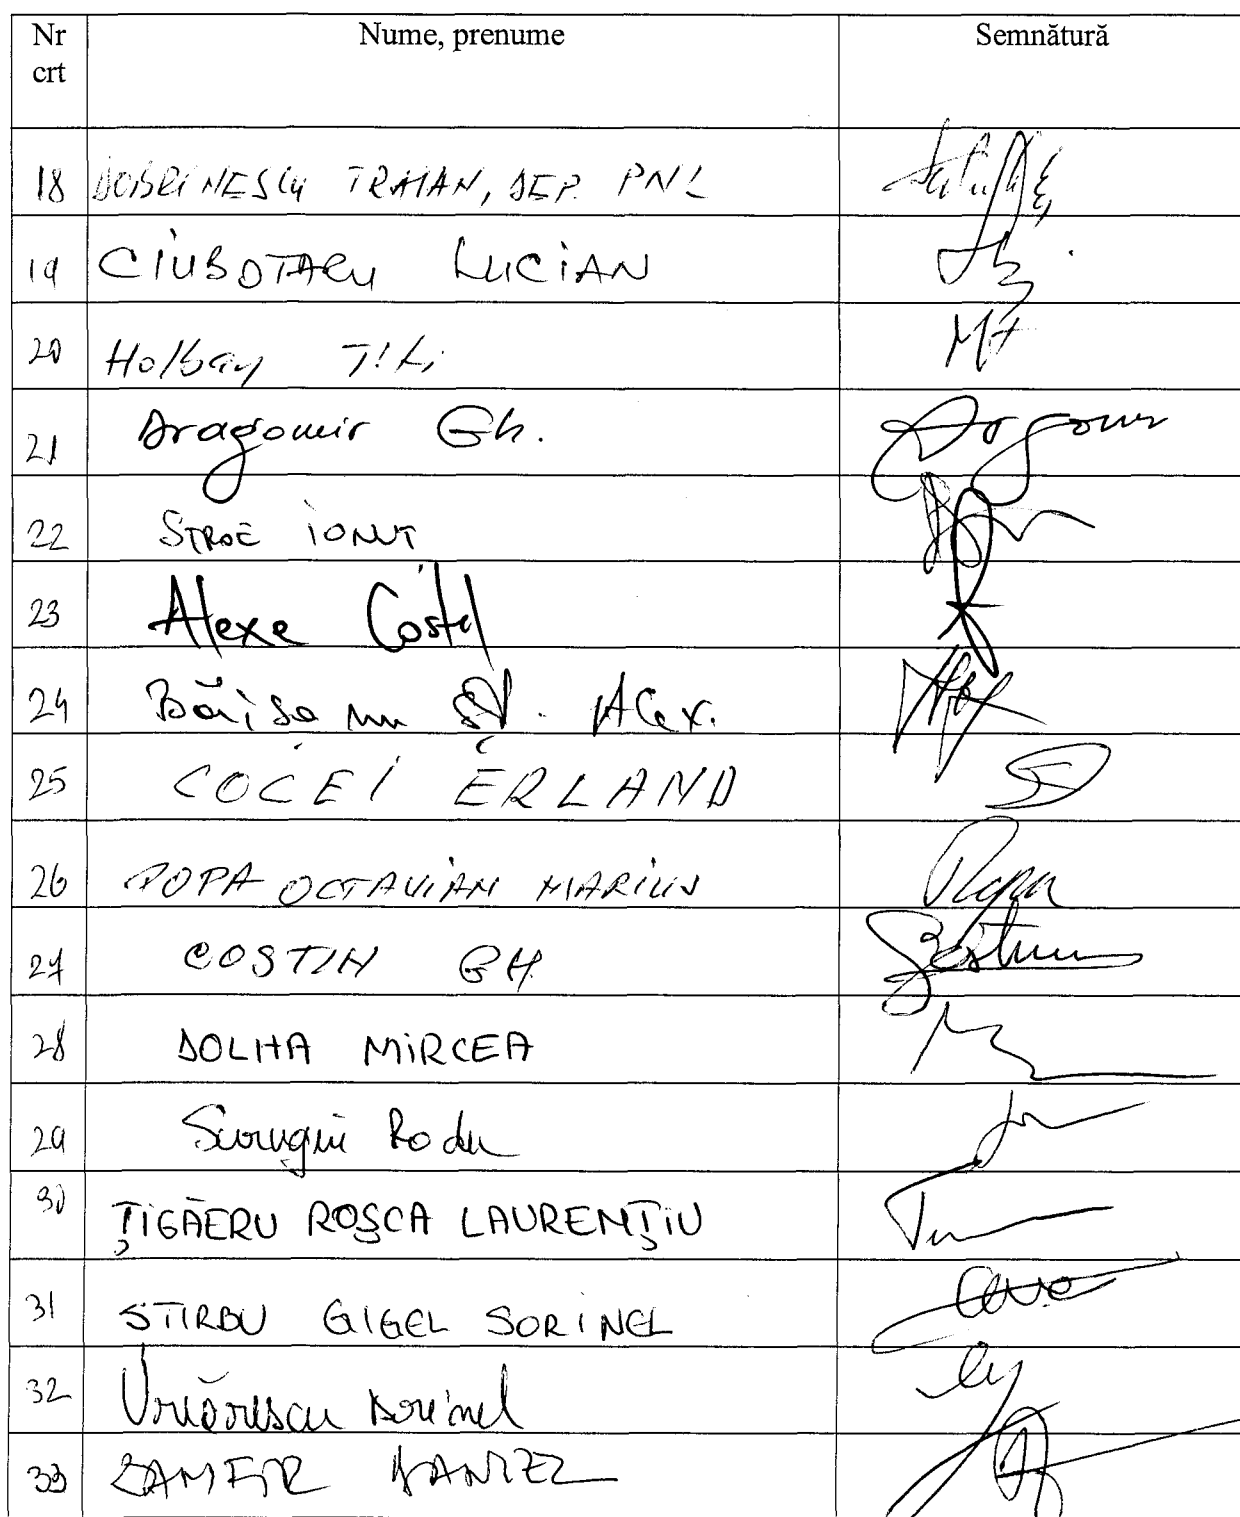 Nr crt Nume, prenume Semnătură
18 DOBRINESCU TRAIAN, DEP. PNL
19 CIUBOTARU LUCIAN
20 Holbay Titi
21 Dragomir Gh.
22 STROE IONUT
23 Alexe Costel
24 Băişanu Şt. Alex.
25 COCEI ERLAND
26 POPA OCTAVIAN MARIUS Popa
27 COSTIN GH. Costin
28 DOLHA MIRCEA
29 Surugiu Radu
30 ŢIGĂERU ROŞCA LAURENŢIU
31 STIRBU GIGEL SORINEL
32 Dorinel
33 ZAMFIR DANIEL